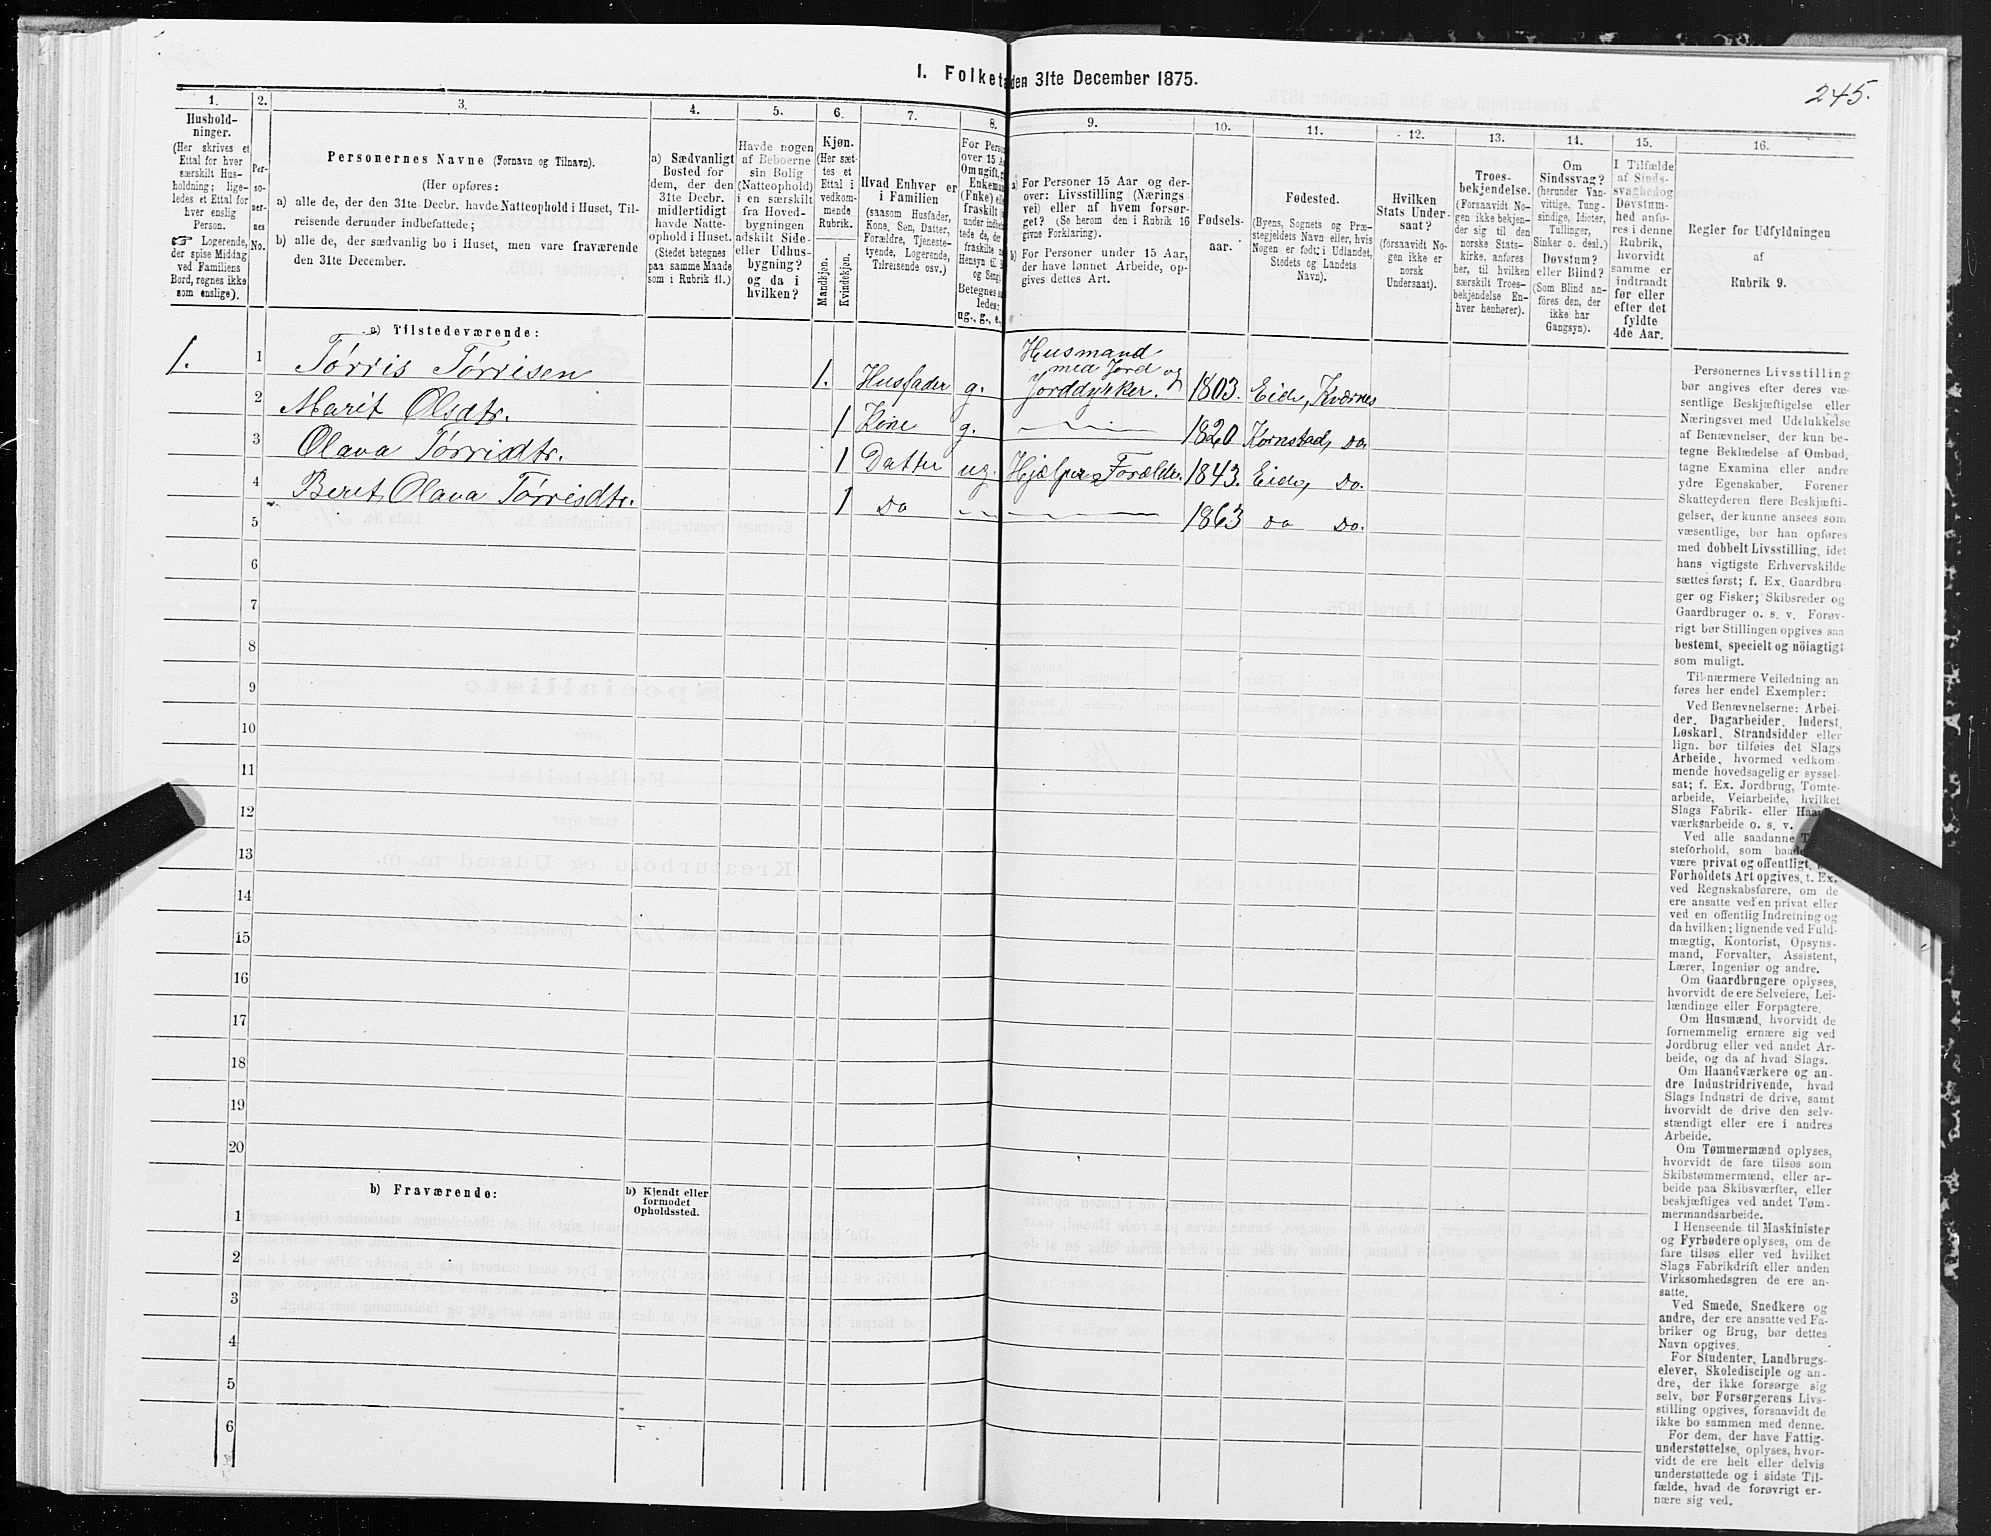 245.
1. Folket den 31te December 1875.
1. 2. 3. 4. 5. 6. 7. 8. 9. 10. 11. 12. 13. 14. 15. 16.
Hushold-
ninger.
(Her skrives et
Ettal for hver
særskilt Hus-
holdning; lige-
ledes et Ettal for
hver enslig
Person.
☞ Logerende,
der spise Middag
ved Familiens
Bord, regnes ikke
som enslige).
Per-
so-
ner-
nes
No.
Personernes Navne (Fornavn og Tilnavn).
(Her opføres:
a) alle de, der den 31te Decbr. havde Natteophold i Huset, Til-
reisende derunder indbefattede;
b) alle de, der sædvanlig bo i Huset, men vare fraværende
den 31te December.
a) Sædvanligt
Bosted for
dem, der den
31te Decbr.
midlertidigt
havde Natte-
ophold i Huset.
(Stedet betegnes
paa samme Maade
som i Rubrik 11.)
Havde nogen
af Beboerne
sin Bolig
(Natteophold)
i en særskilt
fra Hoved-
bygningen
adskilt Side-
eller Udhus-
bygning?
og da i
hvilken?
Kjøn.
(Her sæt-
tes et
Ettal i
vedkom-
mende
Rubrik.
Mandkjøn.
Kvindekjøn.
Hvad Enhver er
i Familien
(saasom Husfader,
Kone, Søn, Datter,
Forældre, Tjeneste-
tyende, Logerende,
Tilreisende osv.)
For Perso
over 15 A
Om ugift, g
Enkema
(Fnke) el
fraskilt
under indbe
tede de,
fraskilte
Hensyn til
og Seng
Betegnes s
ledes:
ug., g., e.,
a) For Personer 15 Aar og der-
over: Livsstilling (Nærings
vei) eller af hvem forsør-
get? (Se herom den i Rubrik 16
givne Forklaring).
b) For Personer under 15 Aar,
der have lønnet Arbeide, op-
gives dettes Art.
Fødsels-
aar.
Fødested.
(Byens, Sognets og Præ-
stegjeldets Navn eller, hvis
Nogen er født i Udlandet,
Stedets og Landets
Navn).
Hvilken
Stats Under-
saat?
(forsaavidt No-
gen ikke er
norsk
Undersaat).
Troes-
bekjendelse.
(Forsaavidt No-
gen ikke bekjen-
der sig til den
norske Stats-
kirke, anføres
her, til hvilken
særskilt Troes-
bekjendelse En-
hver henhører).
Om
Sindssvag?
(herunder Van-
vittige, Tung-
sindige, Idioter,
Tullinger,
Sinker o. desl.)
Døvstum?
eller Blind?
(Som Blind an-
føres den, der
ikke har
Gangsyn).
I Tilfælde
af Sinds-
svaghed og
Døvstum-
hed anfø-
res i denne
Rubrik,
hvorvidt
samme er
indtraadt
før eller
efter det
fyldte
4de Aar.
Regler for Udfyldningen
af
Rubrik 9.
a) Tilstedeværende:
1. 1 Tørris Tørrisen 1. Husfader g. Husmand med Jord og Jorddyrker. 1803. Eide, Kværnes
2 Marit Olsdtr. 1 Kone g. 1820 Kornstad, Do
3 Olava Tørrisdtr. 1 Datter ug. Hjælper Forælder. 1843. Eide, Do.
4 Beret Olava Tørrisdtr. 1 Do 1863 Do Do.
5
6
7
8
9
10
11
12
13
14
15
16
17
18
19
20
b) Fraværende:
b) Kjendt eller
formodet
Opholdssted.
1
2
3
4
5
6
Personernes Livsstilling
bør angives efter deres væ-
sentlige Beskjæftigelse eller
Næringsvei med Udelukkelse
af Benævnelser, der kun be-
tegne Beklædelse af Ombud,
tagne Examina eller andre
ydre Egenskaber. Forener
Skatteyderen flere Beskjæfti-
gelser, der kunne ansees som
væsentlige, bør han opføres
med dobbelt Livsstilling, idet
hans vigtigste Erhvervskilde
sættes først; f. Ex. Gaardbru-
ger og Fisker; Skibsreder og
Gaardbruger o. s. v. Forøv-
rigt bør Stillingen opgives saa
bestemt, specielt og nöiagtigt
som muligt.
Til nærmere Veiledning an-
føres her endel Exempler:
Ved Benævnelserne: Arbei-
der, Dagarbeider, Inderst,
Løskarl, Strandsidder eller
lign. bør tilføies det Slags
Arbeide, hvormed vedkom-
mende hovedsagelig er syssel-
sat; f. Ex. Jordbrug, Tomte-
arbeide, Veiarbeide, hvilket
Slags Fabrik- eller Haand-
værksarbeide o. s. v.
Ved alle saadanne
steforhold, som baade
være privat og offentligt,
Forholdets Art opgives, t. Ex.
ved Regnskabsførere, om de
ere ansatte ved en privat eller
ved en offentlig Indretning og
da hvilken; lignende ved Fuld-
mægtig, Kontorist, Opsyns-
mand, Forvalter, Assistent,
Lærer, Ingeniør og andre.
Om Gaardbrugere oplyses,
hvorvidt de ere Selveiere, Lei-
lændinge eller Forpagtere.
Om Husmænd, hvorvidt de
fornemmelig ernære sig ved
Jordbrug eller ved andet Ar-
beide, og da af hvad Slags.
Om Haandværkere og an-
dre Industridrivende, hvad
Slags Industri de drive, samt
hvorvidt de drive den selv-
stændigt eller ere i andres
Arbeide.
Om Tømmermænd oplyses,
hvorvidt de fare tilsøs som
Skibstømmermænd, eller ar-
beide paa Skibsværfter, eller
beskjæftiges ved andet Tøm-
mermandsarbeide.
I Henseende til Maskinister
og Fyrbødere oplyses, om de
fare tilsøs eller ved hvilket
Slags Fabrikdrift eller anden
Virksomhedsgren de ere an-
satte.
Ved Smede, Snedkere og
andre, der ere ansatte ved Fa-
briker og Brug, bør dettes
Navn opgives.
For Studenter, Landbrugs-
elever, Skoledisciple og an-
dre, der ikke forsørge sig
selv, bør Forsørgerens Livs-
stilling opgives, forsaavidt de
ikke bo sammen med denne.
For dem, der have Fattig-
understøttelse, oplyses, hvor-
vidt de ere helt eller delvis
understøttede og i sidste Til-
fælde, hvad de forøvrigt er-
nære sig ved.